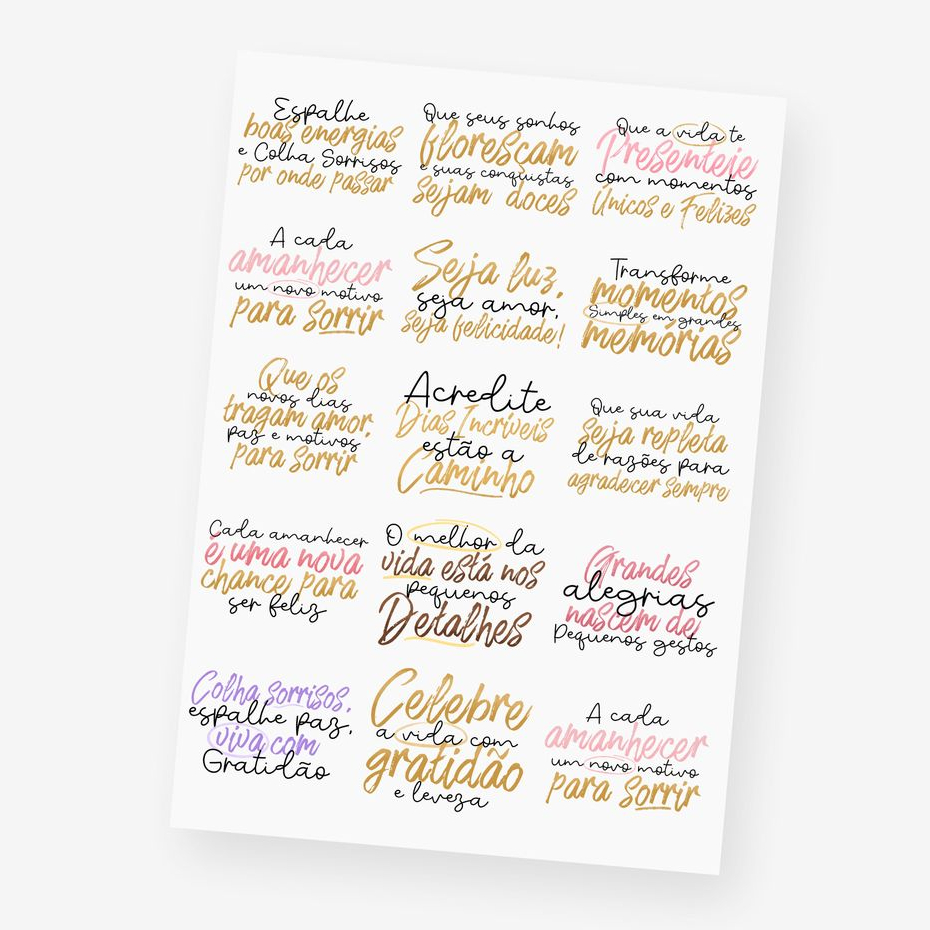 Espalhe
boas energias
e Colha Sorrisos
por onde passar
Que seus sonhos
floresçam
e suas conquistas
sejam doces
Que a vida te
Presenteie
com momentos
Únicos e Felizes
A cada
amanhecer
um novo motivo
para sorrir
Seja luz,
seja amor,
seja felicidade!
Transforme
momentos
Simples em grandes
memórias
Que os
novos dias
tragam amor,
paz e motivos
para sorrir
Acredite
Dias Incríveis
estão a
Caminho
Que sua vida
seja repleta
de razões para
agradecer sempre
Cada amanhecer
é uma nova
chance para
ser feliz
O melhor da
vida está nos
pequenos
Detalhes
Grandes
alegrias
nascem de
Pequenos gestos
Colha sorrisos,
espalhe paz,
viva com
Gratidão
Celebre
a vida com
gratidão
e leveza
A cada
amanhecer
um novo motivo
para sorrir